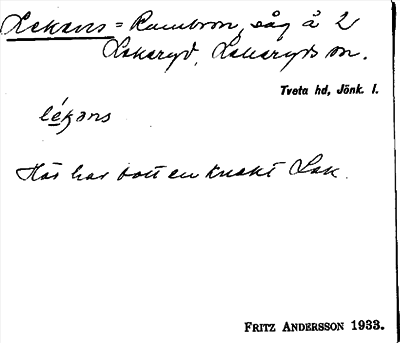 Lekans = Rambron, såg å 2
Lekeryd, Lekeryds sn.
Tveta hd, Jönk. l.
lékans
Här har bott en knekt Lek.
FRITZ ANDERSSON 1933.